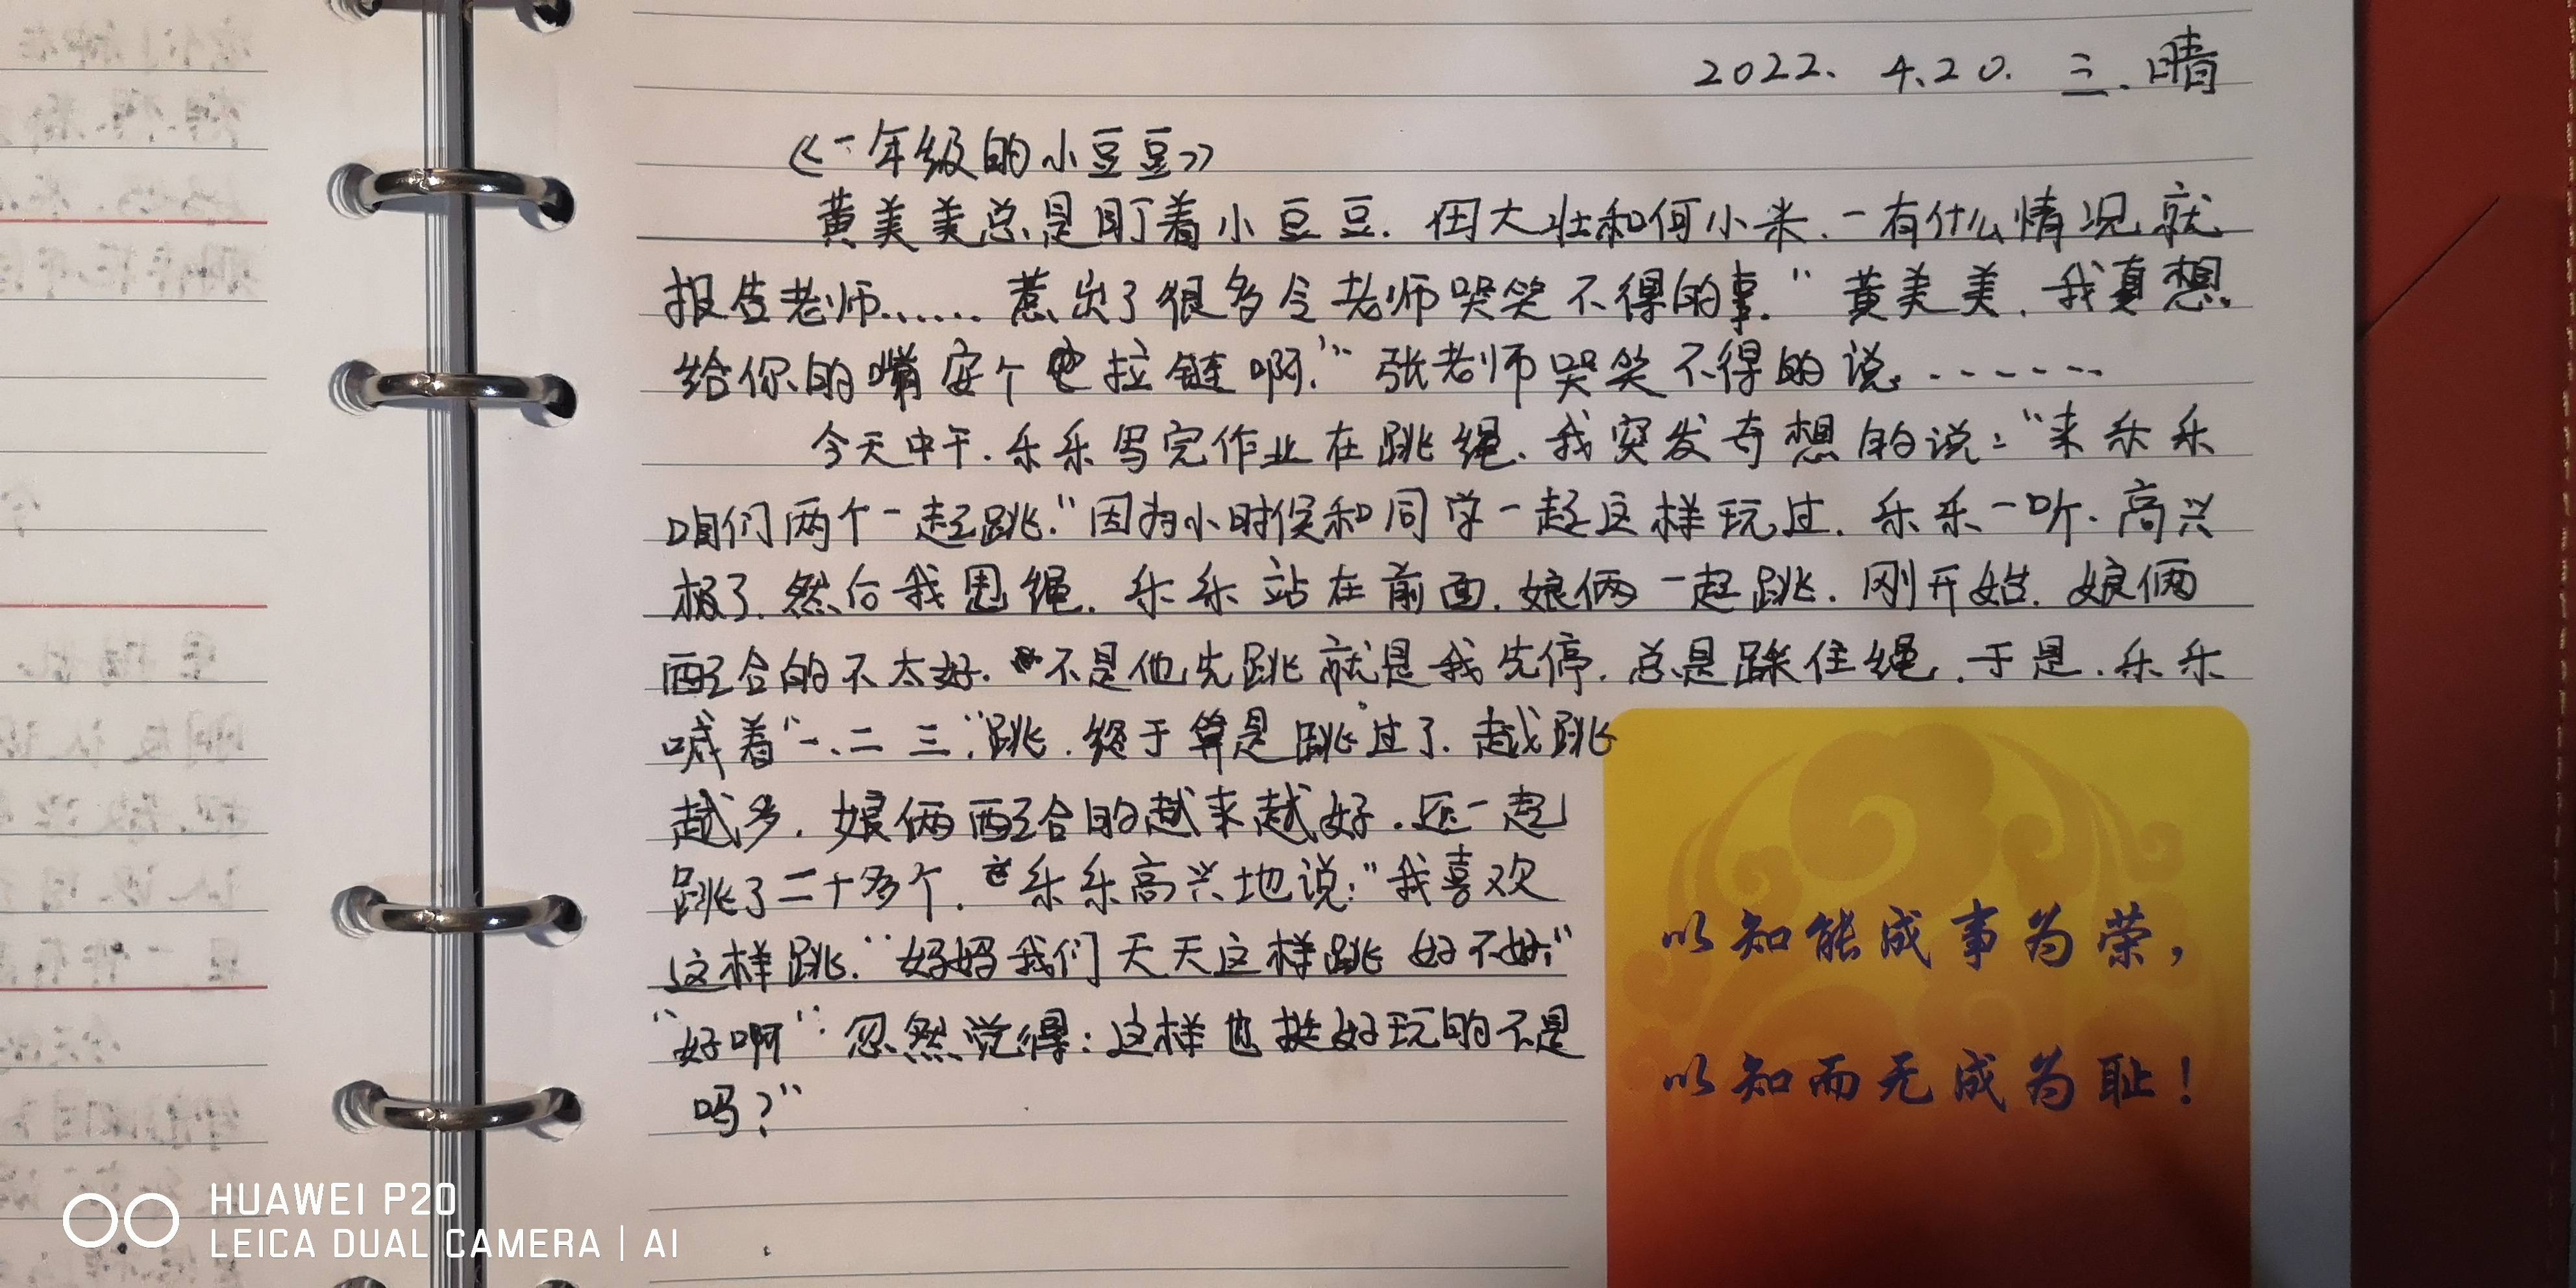 2022. 4.20. 三. 晴
《一年级的小豆豆》
黄美美总是盯着小豆豆. 田大壮和何小米. 一有什么情况就
报告老师...... 惹出了很多令老师哭笑不得的事. “黄美美. 我真想
给你的嘴安个拉链啊.” 张老师哭笑不得的说.......
今天中午. 乐乐写完作业在跳绳. 我突发奇想的说: “来乐乐
咱们两个一起跳.” 因为小时候和同学一起这样玩过. 乐乐一听. 高兴
极了. 然后我甩绳. 乐乐站在前面. 娘俩一起跳. 刚开始. 娘俩
配合的不太好. 不是他先跳就是我先停. 总是踩住绳. 于是. 乐乐
喊着“一.二 三.”跳. 终于算是跳过了. 越跳
越多. 娘俩配合的越来越好. 还一起
跳了二十多个. 乐乐高兴地说: “我喜欢
这样跳.” “妈妈我们天天这样跳 好不好”
“好啊” 忽然觉得: 这样也挺好玩的不是
吗?”
以知能成事为荣，
以知而无成为耻！
HUAWEI P20
LEICA DUAL CAMERA | AI